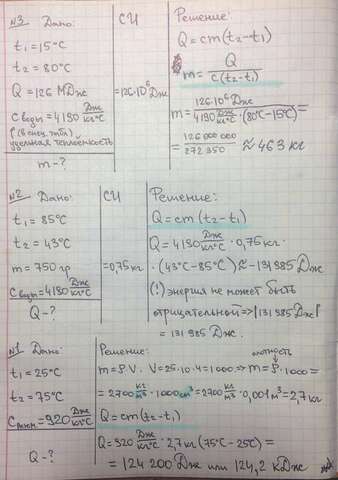 №3 Дано:
t₁ = 15°C
t₂ = 80°C
Q = 126 МДж
C воды = 4190 Дж/кг°C
(в спец. табл)
удельная теплоёмкость
m - ?
СИ
= 126·10⁶ Дж
Решение:
Q = cm(t₂ - t₁)
m = Q / c(t₂ - t₁)
m = 126·10⁶ Дж / 4190 Дж/кг°C · (80°C - 15°C) =
= 126 000 000 / 272 350 ≈ 463 кг
№2 Дано:
t₁ = 85°C
t₂ = 43°C
m = 750 гр
C воды = 4190 Дж/кг°C
Q - ?
СИ
= 0,75 кг
Решение:
Q = cm(t₂ - t₁)
Q = 4190 Дж/кг°C · 0,75 кг ·
· (43°C - 85°C) ≈ -131 985 Дж
(!) энергия не может быть
отрицательной => |131 985 Дж|
= 131 985 Дж.
№1 Дано:
t₁ = 25°C
t₂ = 75°C
C алюм. = 920 Дж/кг°C
Q - ?
Решение:
плотность
m = ρ·V. V = 25·10·4 = 1000 => m = ρ·1000 =
= 2700 кг/м³ · 1000 см³ = 2700 кг/м³ · 0,001 м³ = 2,7 кг
Q = cm(t₂ - t₁)
Q = 920 Дж/кг°C · 2,7 кг (75°C - 25°C) =
= 124 200 Дж или 124,2 кДж